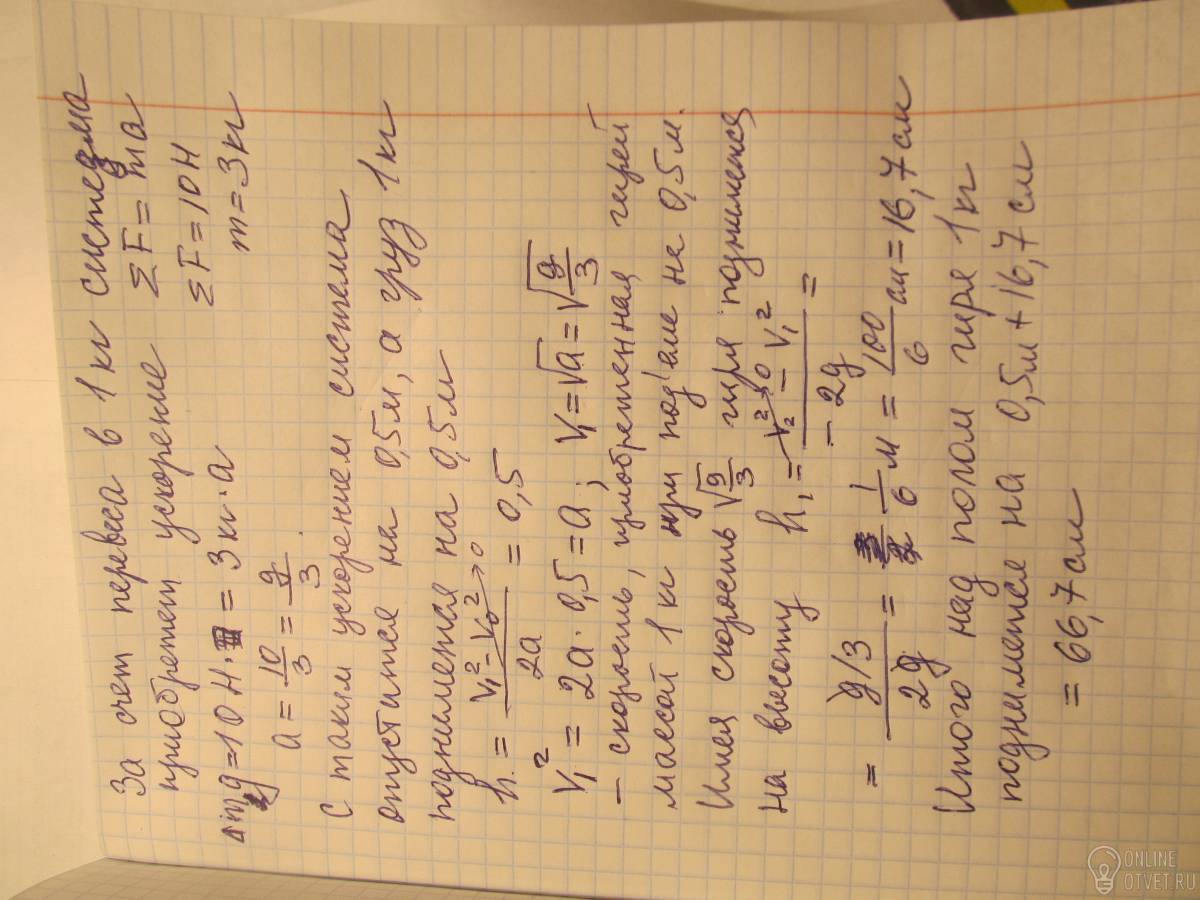 За счет перевеса в 1 кг система
приобретет ускорение ΣF = ma
Δmg = 10 Н = 3 кг · a ΣF = 10 Н
a = 10/3 = g/3. m = 3 кг
С таким ускорением система
опустится на 0,5 м, а груз 1 кг
поднимется на 0,5 м
h = (V₁² - V₀²→0)/2a = 0,5
V₁² = 2a · 0,5 = a; V₁ = √a = √(g/3)
– скорость, приобретенная гирей
массой 1 кг при под'еме на 0,5 м.
Имея скорость √(g/3) гиря поднимется
на высоту h₁ = (V₂²→0 - V₁²)/(-2g) =
= (g/3)/2g = 1/6 м = 100/6 см = 16,7 см
Итого над полом гиря 1 кг
поднимется на 0,5 м + 16,7 см
= 66,7 см
ONLINE
OTVET.RU